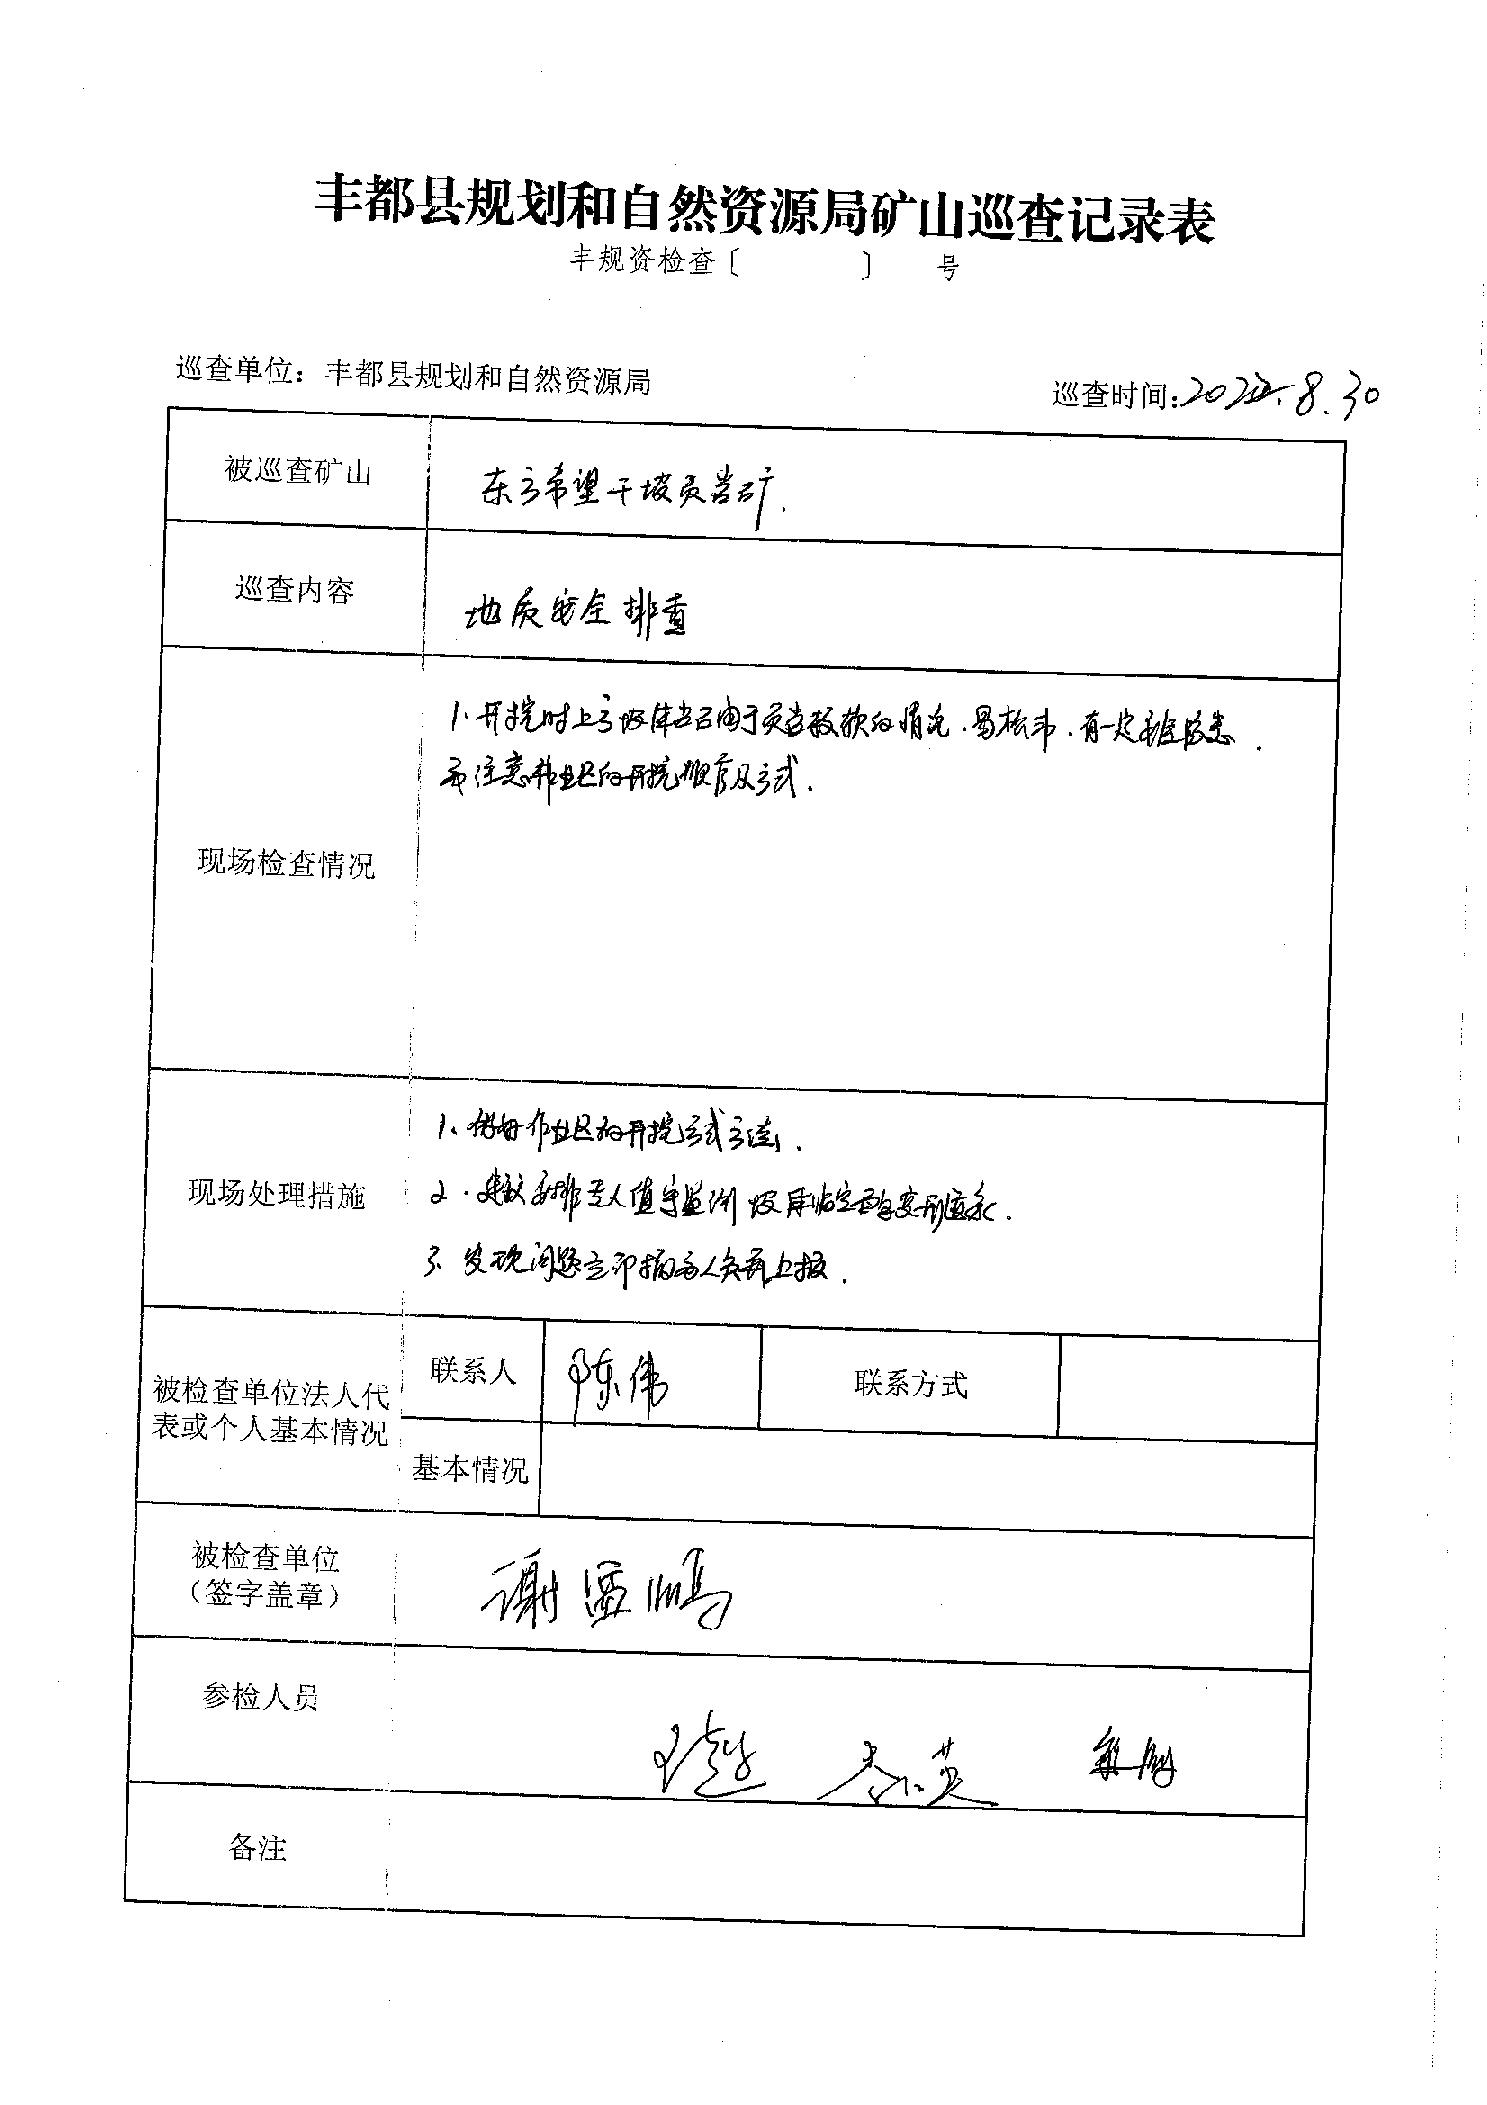 丰都县规划和自然资源局矿山巡查记录表
丰规资检查〔 〕 号
巡查单位：丰都县规划和自然资源局
巡查时间：2022.8.30
被巡查矿山
东方希望干坡页岩矿.
巡查内容
地质安全排查
现场检查情况
1.开挖时上方坡体岩石由于页岩较软的情况.易松动.有一定隐患.
需注意作业区的开挖顺序及方式.
现场处理措施
1、作业区的开挖方式方法.
2.建议安排专人值守监测坡
3.发现问题立即撤离人员并上报.
被检查单位法人代
表或个人基本情况
联系人
陈伟
联系方式
基本情况
被检查单位
（签字盖章）
谢
参检人员
备注